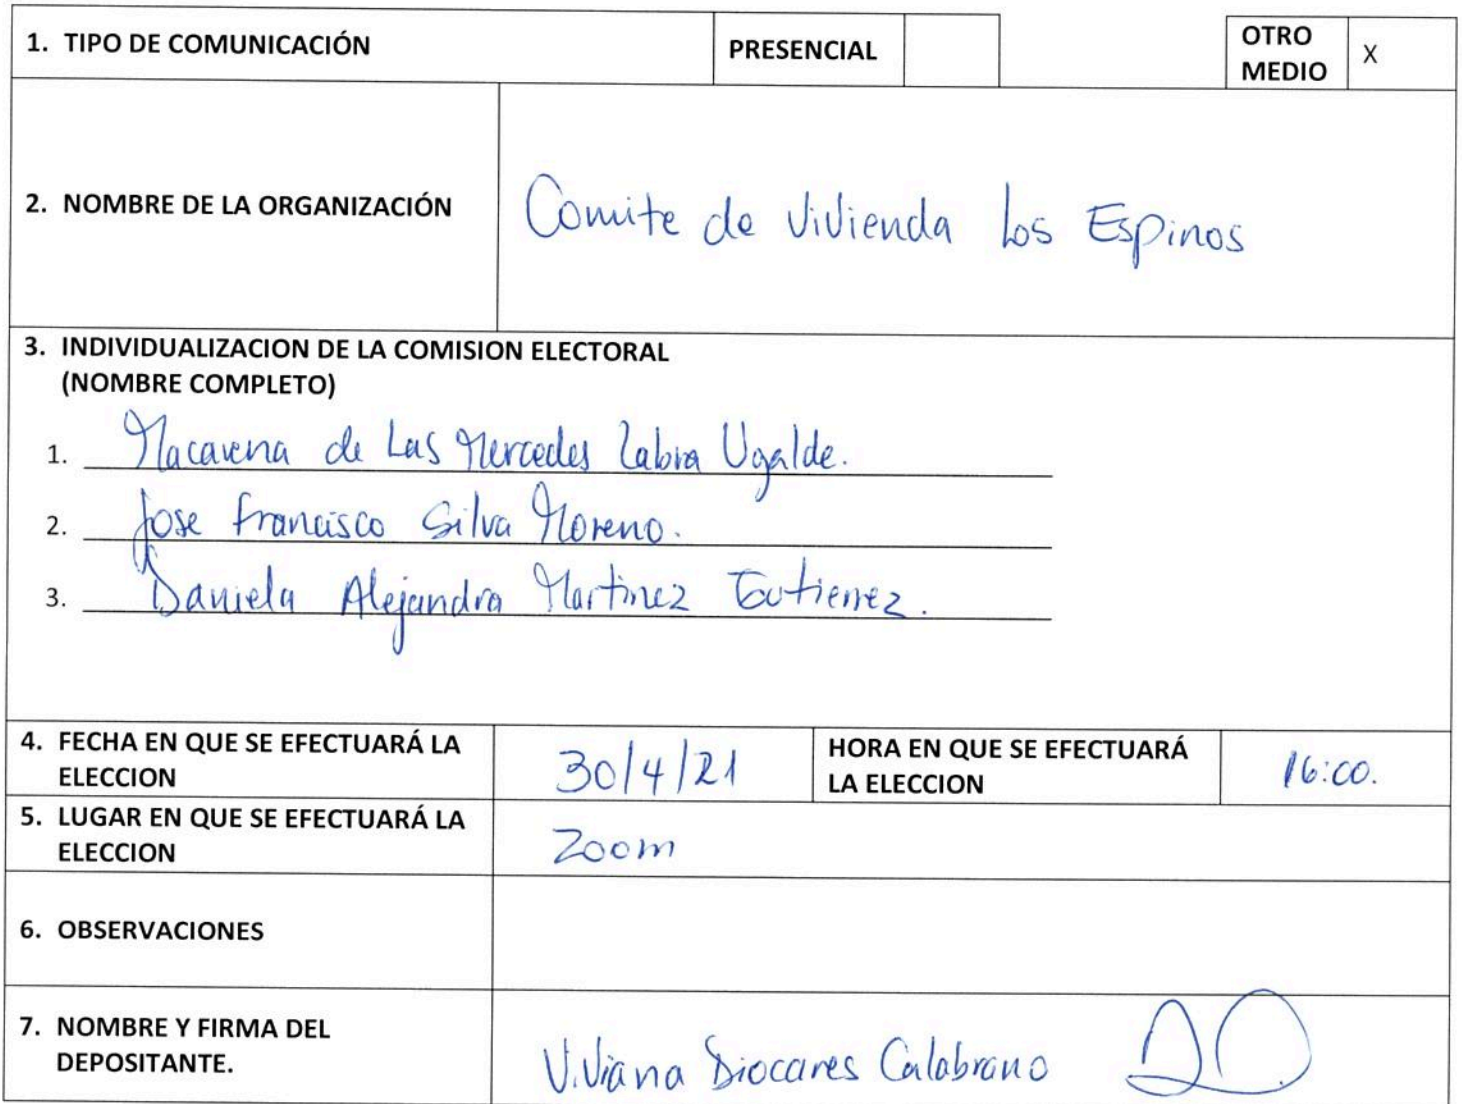 1. TIPO DE COMUNICACIÓN PRESENCIAL OTRO MEDIO X
2. NOMBRE DE LA ORGANIZACIÓN Comite de Vivienda Los Espinos
3. INDIVIDUALIZACION DE LA COMISION ELECTORAL
(NOMBRE COMPLETO)
1. Macarena de Las Mercedes Labra Ugalde.
2. Jose Francisco Silva Moreno.
3. Daniela Alejandra Martinez Gutierrez.
4. FECHA EN QUE SE EFECTUARÁ LA ELECCION 30/4/21 HORA EN QUE SE EFECTUARÁ LA ELECCION 16:00.
5. LUGAR EN QUE SE EFECTUARÁ LA ELECCION Zoom
6. OBSERVACIONES
7. NOMBRE Y FIRMA DEL DEPOSITANTE. Viviana Diocares Calabrano